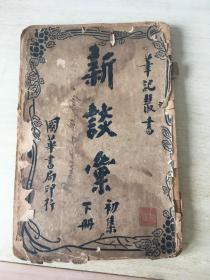 筆記叢書
新談彙
初集
下冊
國華書局印行